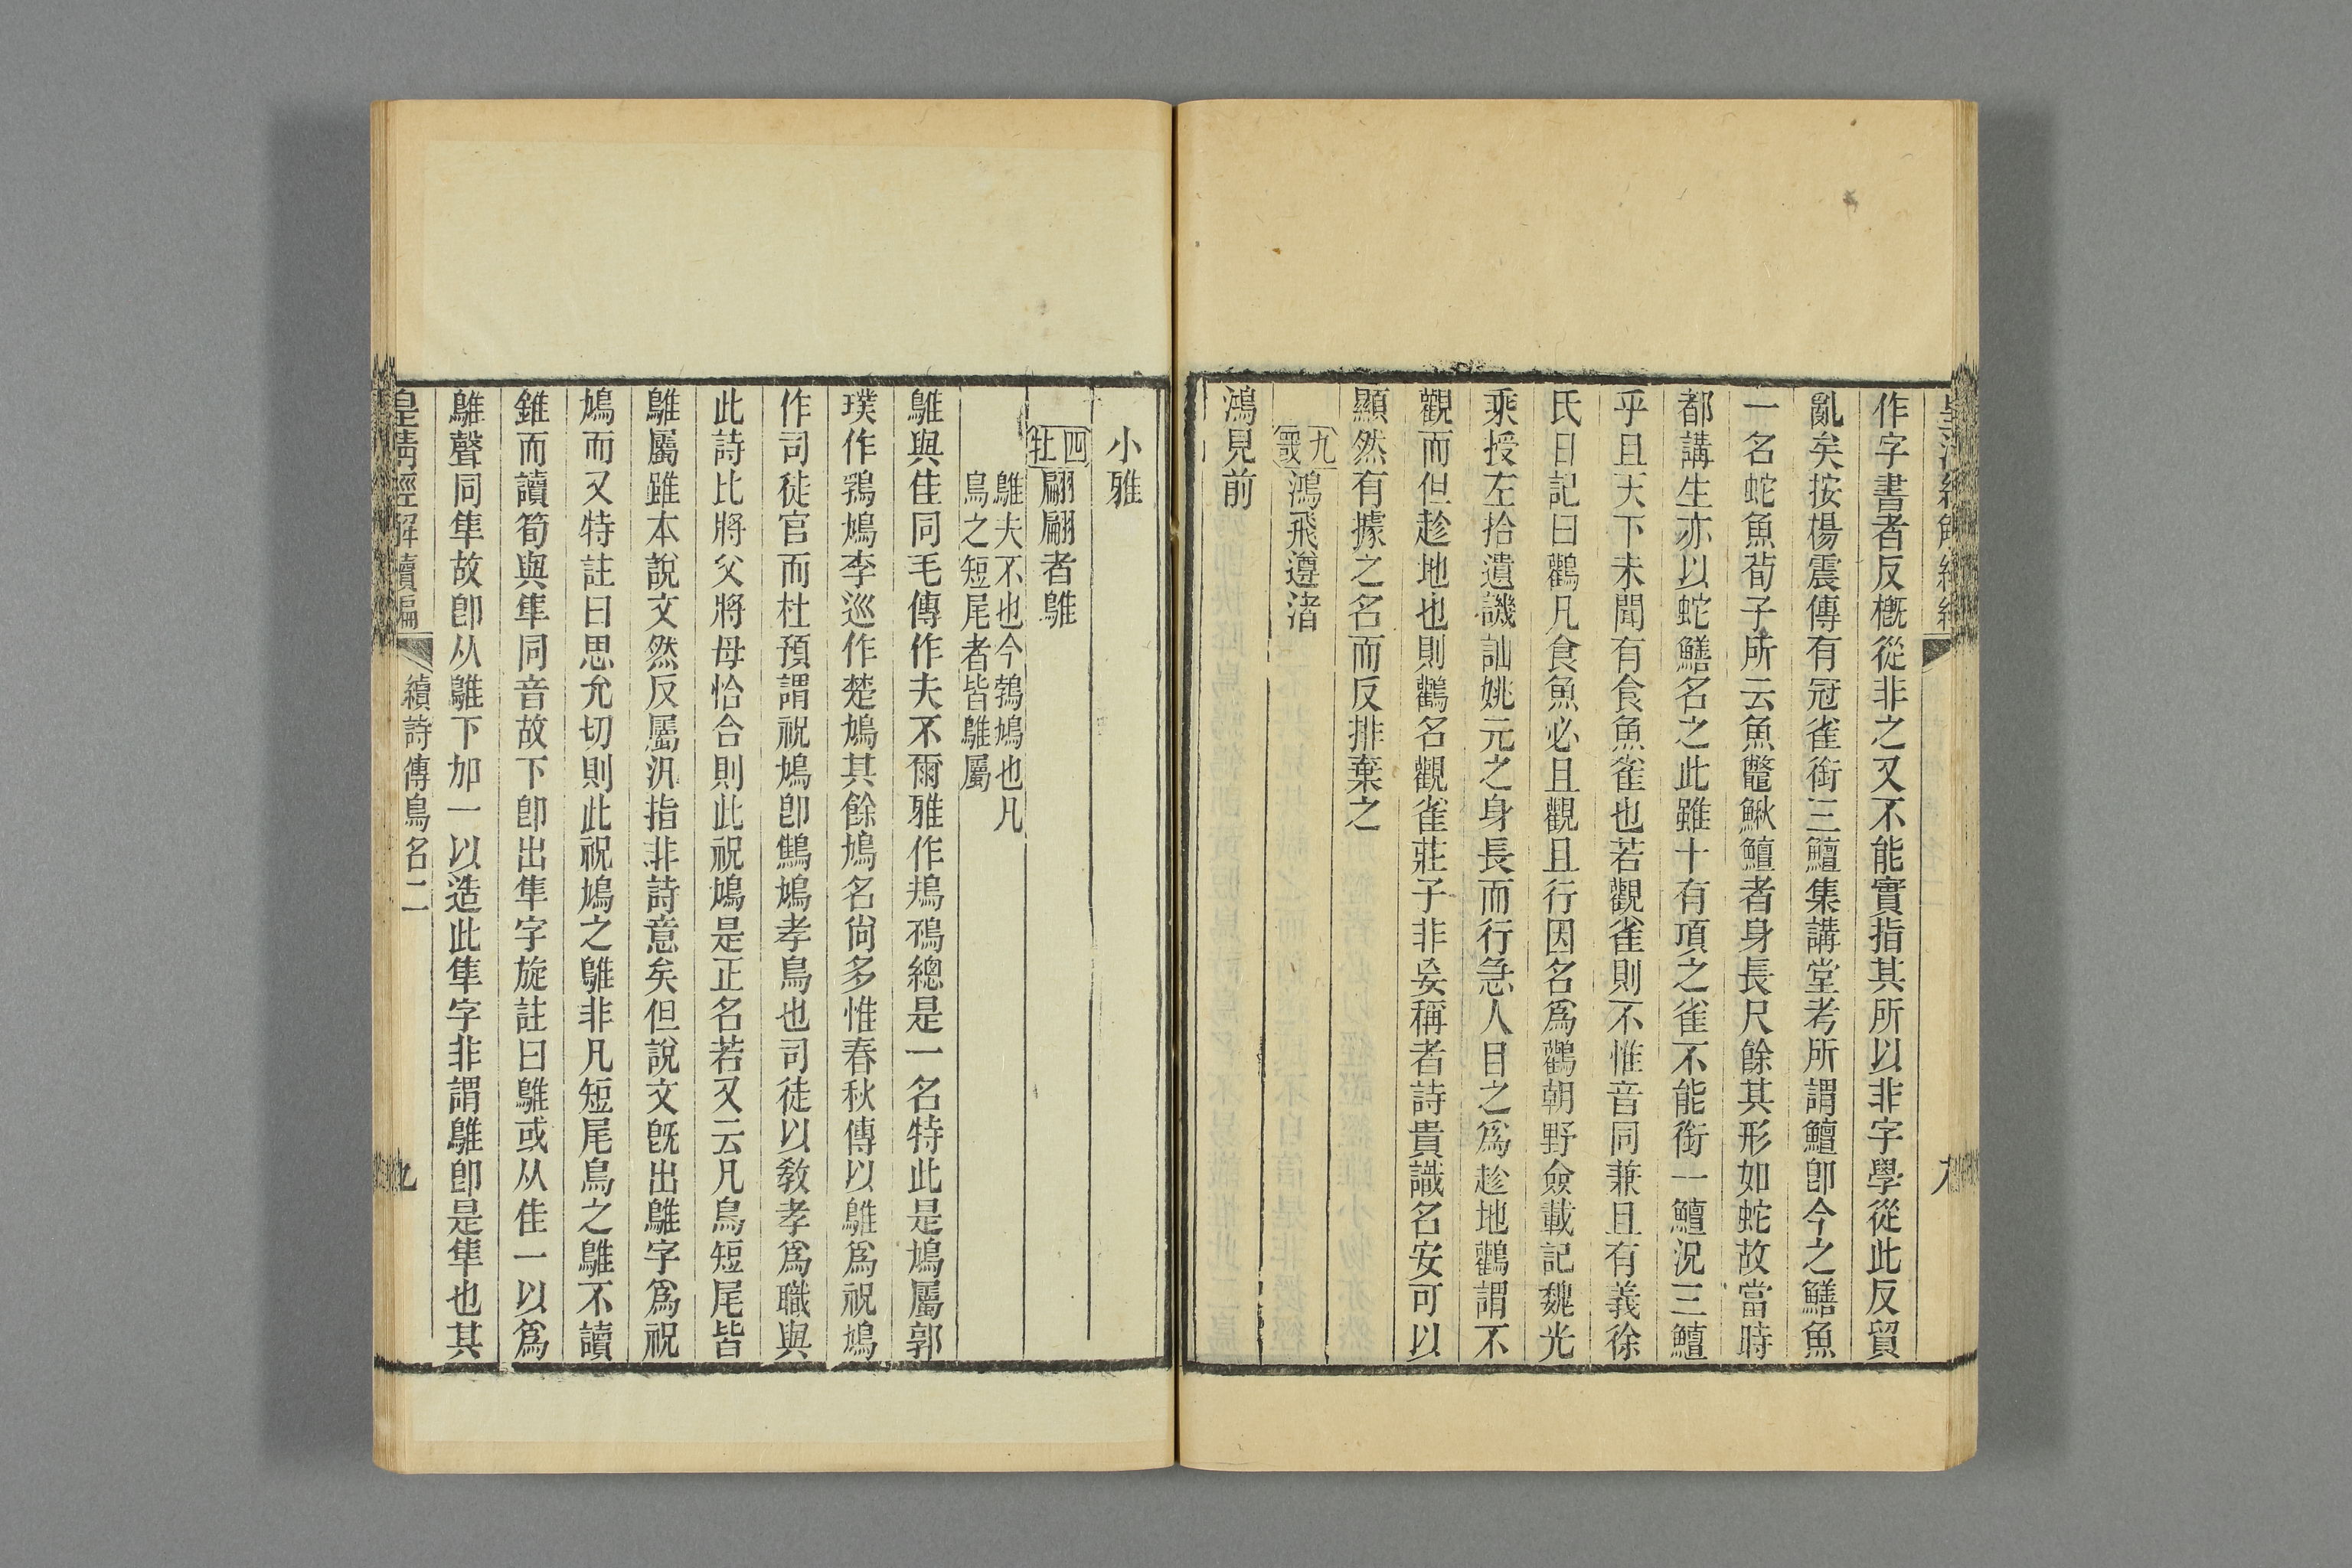 作字書者反概從非之又不能實指其所以非字學從此反貿
亂矣按楊震傳有冠雀銜三鱣集講堂考所謂鱣卽今之鱔魚
一名蛇魚荀子所云魚鼈鰍鱣者身長尺餘其形如蛇故當時
都講生亦以蛇鱔名之此雖十有項之雀不能銜一鱣況三鱣
乎且天下未聞有食魚雀也若觀雀則不惟音同兼且有義徐
氏日記曰鸛凡食魚必且觀且行因名爲鸛朝野僉載記魏光
乘授左拾遺譏訕姚元之身長而行急人目之爲趁地鸛謂不
觀而但趁地也則鸛名觀雀莊子非妄稱者詩貴識名安可以
顯然有據之名而反排棄之
九罭鴻飛遵渚
鴻見前
小雅
四牡翩翩者鵻
鵻夫不也今鵓鳩也凡
鳥之短尾者皆鵻屬
鵻與隹同毛傳作夫不爾雅作鳺鴀總是一名特此是鳩屬郭
璞作鶏鳩李巡作楚鳩其餘鳩名尙多惟春秋傳以鵻爲祝鳩
作司徒官而杜預謂祝鳩卽鷦鳩孝鳥也司徒以敎孝爲職與
此詩比將父將母恰合則此祝鳩是正名若又云凡鳥短尾皆
鵻屬雖本說文然反屬汎指非詩意矣但說文旣出鵻字爲祝
鳩而又特註曰思允切則此祝鳩之鵻非凡短尾鳥之鵻不讀
錐而讀筍與隼同音故下卽出隼字旋註曰鵻或从隹一以爲
鵻聲同隼故卽从鵻下加一以造此隼字非謂鵻卽是隼也其
皇淸經解續編
續詩傳鳥名二
九